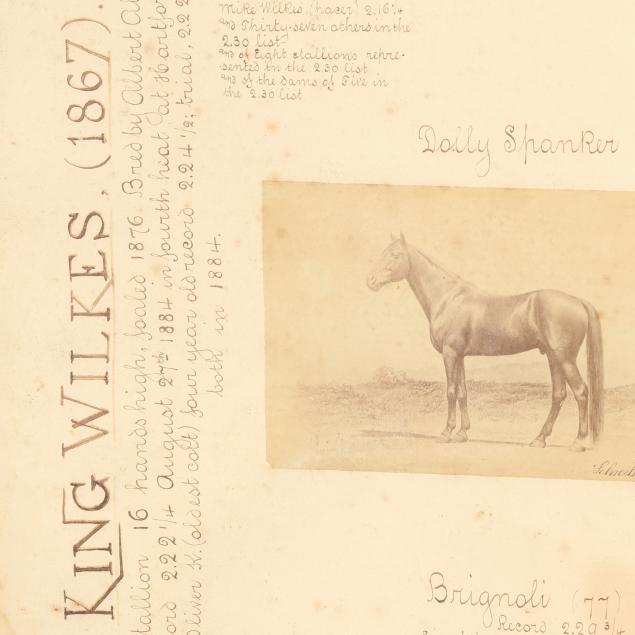 Mike Wilkes (pacer) 2.16¼
and Thirty-seven others in the
2.30 list
and of Eight stallions repre-
sented in the 2.30 list
and of the dams of Five in
the 2.30 list
Dolly Spanker
KING WILKES, (1867).
tallion 16 hands high, foaled 1876. Bred by Albert
ord 2.22¼ August 27th 1884 in fourth heat, at
Oliver K. (oldest colt) four year old record 2.24½; trial, 2.22
both in 1884.
Brignoli (77)
Record 2.29¾